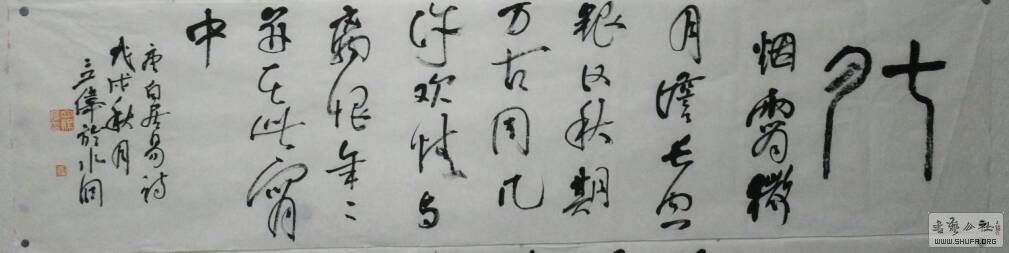 七夕
烟霄微
月澹长空
银汉秋期
万古同几
许欢情与
離恨年々
并在此宵
中
唐白居易诗
戊戌秋月
立偉於
书艺公社
WWW.SHUFA.ORG